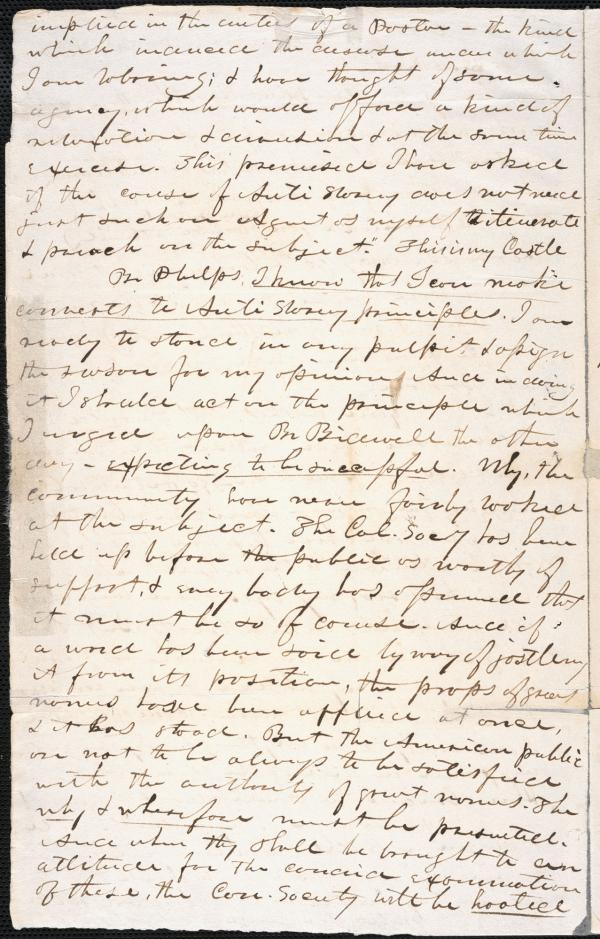 implied in the duties of a Pastor – the kind
which induced the disease under which
I am laboring; & have thought of some
agency, which would afford a kind of
relaxation & diversion & at the same time
exercise. This premised I have asked
if the cause of Anti Slavery does not need
just such an Agent as myself to itinerate
& preach on the subject." This is my Castle
Br Phelps, I know that I can make
converts to Anti Slavery principles. I am
ready to stand in any pulpit & assign
the reason for my opinion, And in doing
it I should act on the principle which
I urged upon Br Bidwell the other
day – expecting to be successful. Why, the
community have never fairly looked
at the subject. The Col. Socy has been
held up before the public as worthy of
support, & every body has opined that
it must be so of course. And if
a word has been said by way of jostling
it from its position, the props of great
names have been applied at once,
& it has stood. But the American public
are not to be always to be satisfied
with the authority of great names. The
why & wherefore must be presented.
And when they shall be brought to an
attitude for the candid examination
of these, the Con. Society will be hooted